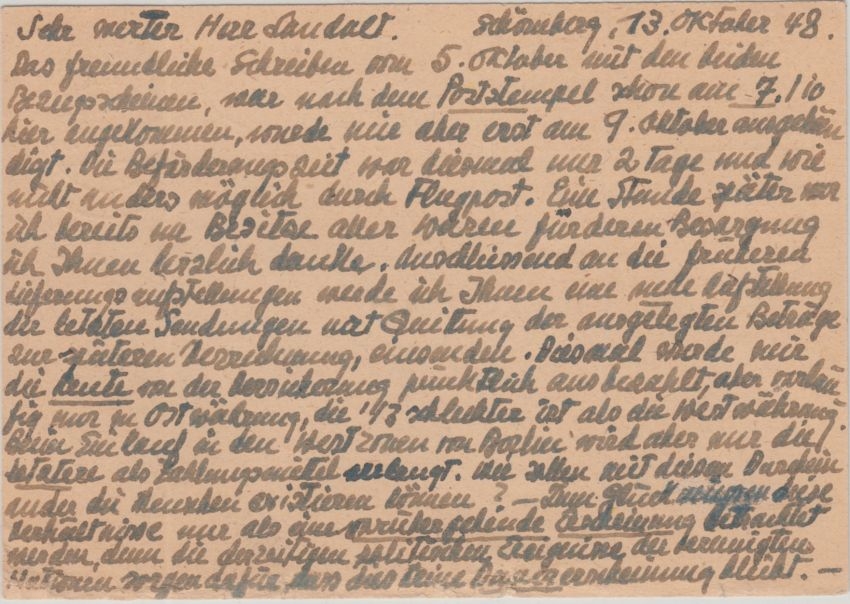 Sehr werter Herr Sandalt. Schömberg, 13. Oktober 48.
Das freundliche Schreiben vom 5. Oktober mit den beiden
Bezugscheinen, war nach dem Poststempel schon am 7./10
hier angekommen, wurde mir aber erst am 9. Oktober ausgehän
digt. Die Beförderungszeit war diesmal nur 2 Tage und wie
nicht anders möglich durch Flugpost. Eine Stunde später war
ich bereits im Besitze aller Waren für deren Besorgung
ich Ihnen herzlich danke. Anschliessend an die früheren
Lieferungsaufstellungen werde ich Ihnen eine neue Aufstellung
der letzten Sendungen mit Quitung der ausgelegten Beträge
zur späteren Verrechnung, einsenden. Diesmal wurde mir
die Rente von der Versicherung pünktlich ausbezahlt, aber vorläu
fig nur in Ostwährung, die 1/3 schlechter ist als die Westwährung.
Beim Einkauf in den Westzonen von Berlin wird aber nur die
letztere als Zahlungsmittel verlangt. Wie sollen mit diesem Durchein
ander die Menschen existieren können? – Zum Glück müssen diese
Verhältnisse nur als eine vorübergehende Erscheinung betrachtet
werden, denn die derzeitigen politischen Ereignisse der vereinigten
Nationen sorgen dafür dass das keine Dauererscheinung bleibt. –